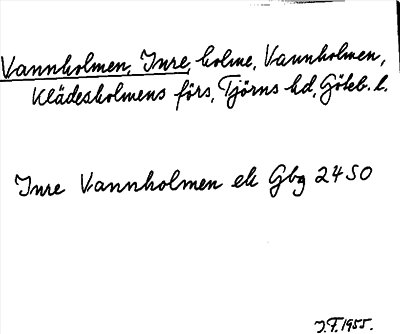 Vannholmen, Inre, holme, Vannholmen,
Klädesholmens förs, Tjörns hd, Göteb. l.
Inre Vannholmen ek Gbg 24 SO
J.F. 1955.